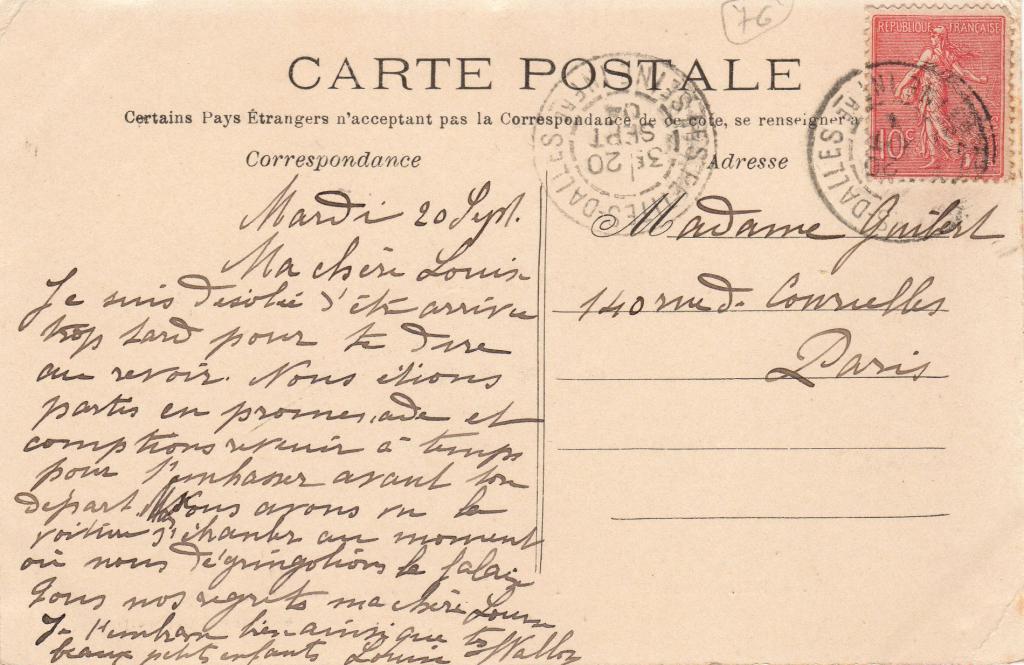 76
RÉPUBLIQUE FRANÇAISE
10c
CARTE POSTALE
Certains Pays Étrangers n'acceptent pas la Correspondance de ce côté, se renseigner à
Correspondance
Adresse
3E / 20
SEPT
04
LES-DALLES
Mardi 20 Sept.
Ma chère Louise
Je suis désolée d'être arrivée
trop tard pour te dire
au revoir. Nous étions
parties en promenade et
comptions revenir à temps
pour t'embrasser avant ton
départ. Nous avons vu la
voiture s'ébranler au moment
où nous dégringolions la falaise
Tous nos regrets ma chère Louise
Je t'embrasse bien ainsi que tes
beaux petits enfants Louise Wallon
Madame Guibert
140 rue de Courcelles
Paris